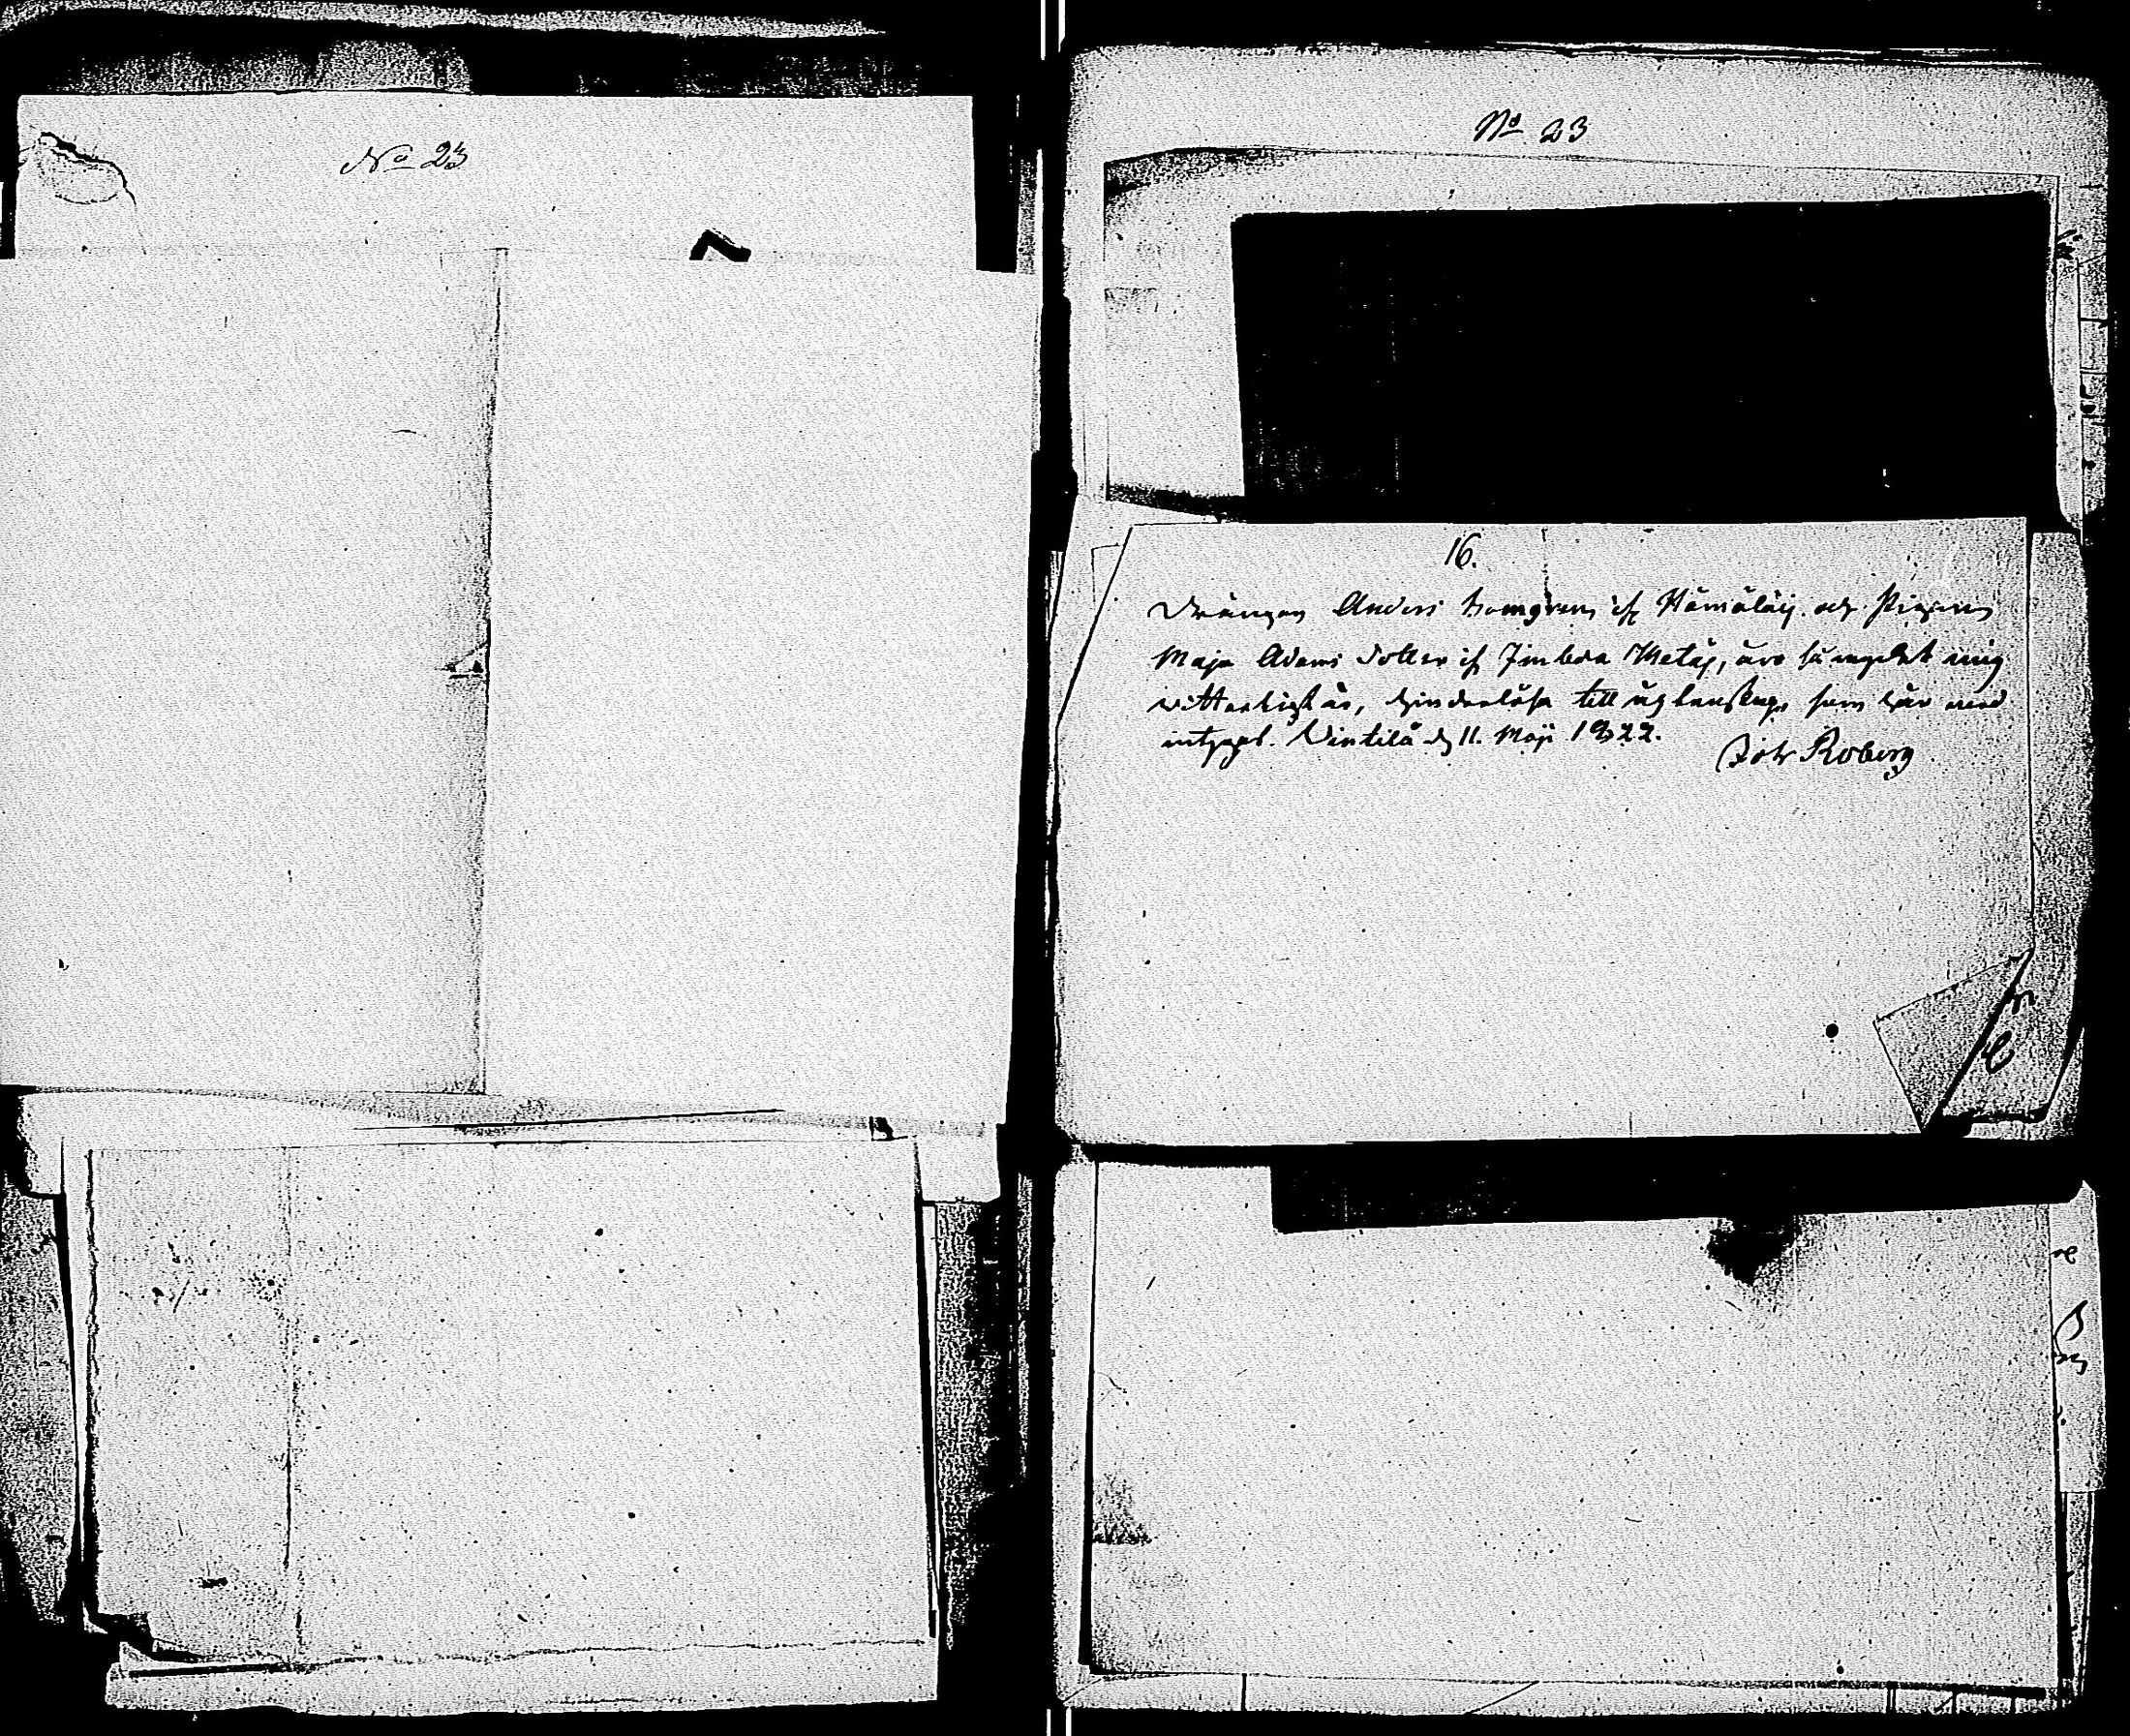 No 23
No 23
16.
Drängen Anders Homgren ifr Hämäläij och Pigan
Maja Adams dotter ifr Jimbda Mataj, äro så mycket mig
vitterligt är, hinderlösa till ägtenskap, som här med
intygas. Vintilä d 11. Maji 1822.
Roberg